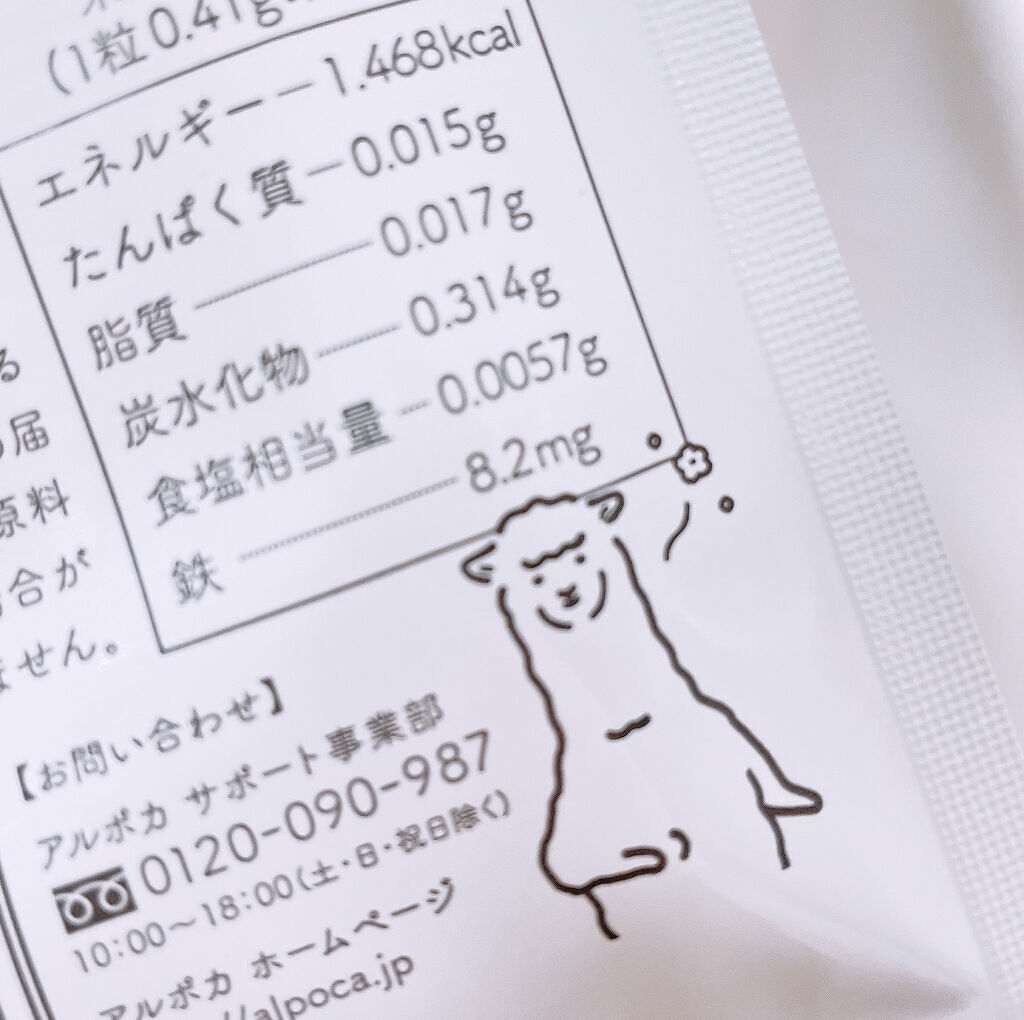 (1粒 0.41g
エネルギー 1.468kcal
たんぱく質 0.015g
脂質 0.017g
炭水化物 0.314g
食塩相当量 0.0057g
鉄 8.2mg
る
届
原料
合が
ません。
【お問い合わせ】
アルポカ サポート事業部
0120-090-987
10:00〜18:00(土・日・祝日除く)
アルポカ ホームページ
//alpoca.jp